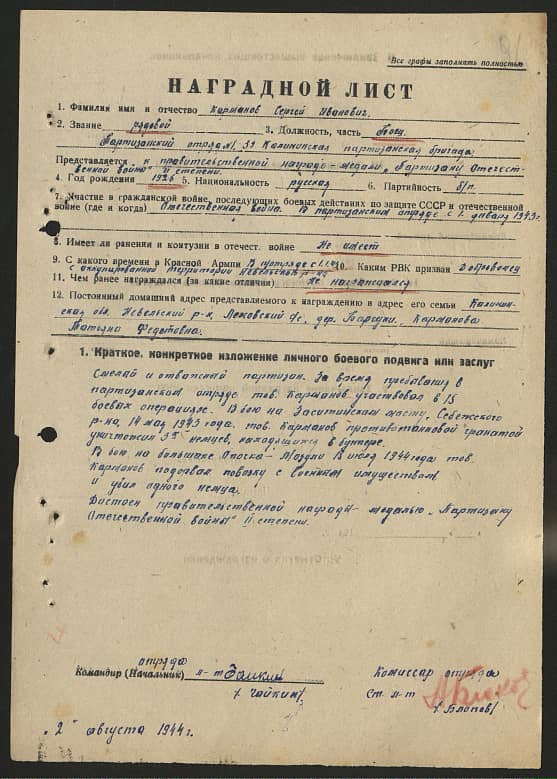 Все графы заполнять полностью
НАГРАДНОЙ ЛИСТ
1. Фамилия имя и отчество Карманов Сергей Иванович.
2. Звание рядовой 3. Должность, часть Боец.
Партизанский отряд №1, 3я Калининская партизанская бригада
Представляется к правительственной награде – медали „Партизану Отечест-
венной войны" II степени.
4. Год рождения 1926 5. Национальность русский 6. Партийность б/п.
7. Участие в гражданской войне, последующих боевых действиях по защите СССР и отечественной
войне (где и когда) Отечественная война. В партизанском отряде с 1. января 1943г.
8. Имеет ли ранения и контузии в отечест. войне Не имеет
9. С какого времени в Красной Армии В п/отряде с 1.1.43 10. Каким РВК призван доброволец
с оккупированной территории Невельский р-на
11. Чем ранее награждался (за какие отличия) Не награждался
12. Постоянный домашний адрес представляемого к награждению и адрес его семьи Калинин-
ская обл. Невельский р-н, с/с, дер. Барсуки. Карманова
Татьяна Федотовна.
1. Краткое, конкретное изложение личного боевого подвига или заслуг
Смелый и отважный партизан. За время пребывания в
партизанском отряде тов. Карманов участвовал в 15
боевых операциях. В бою на Заситинском мосту, Себежского
р-на, 14 мая 1943 года. тов. Карманов противотанковой гранатой
уничтожил 3х немцев, находящихся в бункере.
В бою на большаке Опочка – Мозули 13 июля 1944 года тов.
Карманов подорвал повозку с военным имуществом
и убил одного немца.
Достоен правительственной награды – медалью „Партизану
Отечественной войны" II степени.
отряда
Командир (Начальник) л-т Чайкин
/ Чайкин /
Комиссар отряда
Ст. л-т
/ /
„2" августа 1944г.